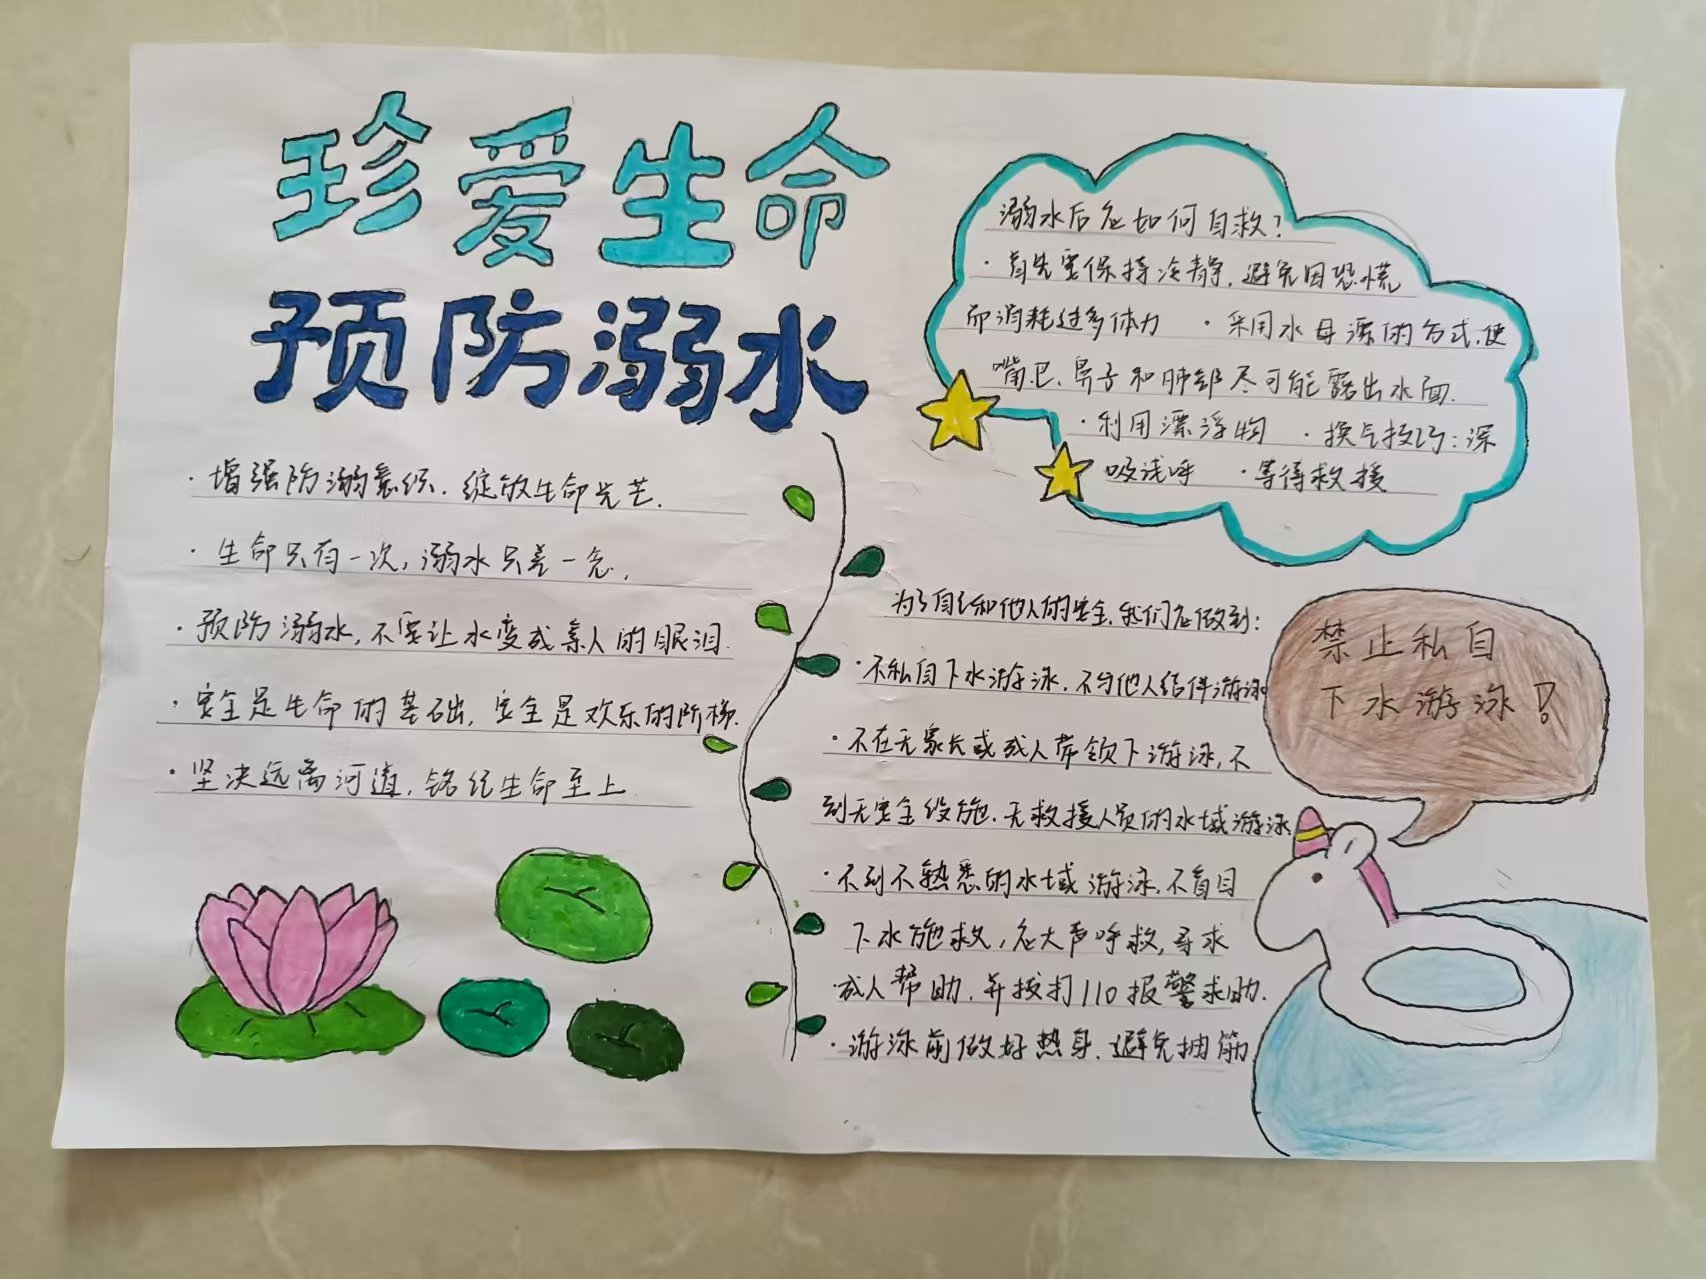 珍爱生命
预防溺水
·增强防溺意识.绽放生命光芒.
·生命只有一次,溺水只差一念,
·预防溺水,不要让水变成亲人的眼泪.
·安全是生命的基础,安全是欢乐的阶梯.
·坚决远离河道,铭纪生命至上.
溺水后应如何自救?
·首先要保持冷静,避免因恐慌
而消耗过多体力 ·采用水母漂的方式,使
嘴巴、鼻子和肺部尽可能露出水面.
·利用漂浮物 ·换气技巧:深
吸浅呼 ·等待救援
为了自己和他人的安全,我们应做到:
·不私自下水游泳.不与他人结伴游泳
·不在无家长或成人带领下游泳,不
到无安全设施.无救援人员的水域游泳
·不到不熟悉的水域游泳,不盲目
下水施救,应大声呼救,寻求
成人帮助,并拨打110报警求助.
·游泳前做好热身.避免抽筋
禁止私自
下水游泳!